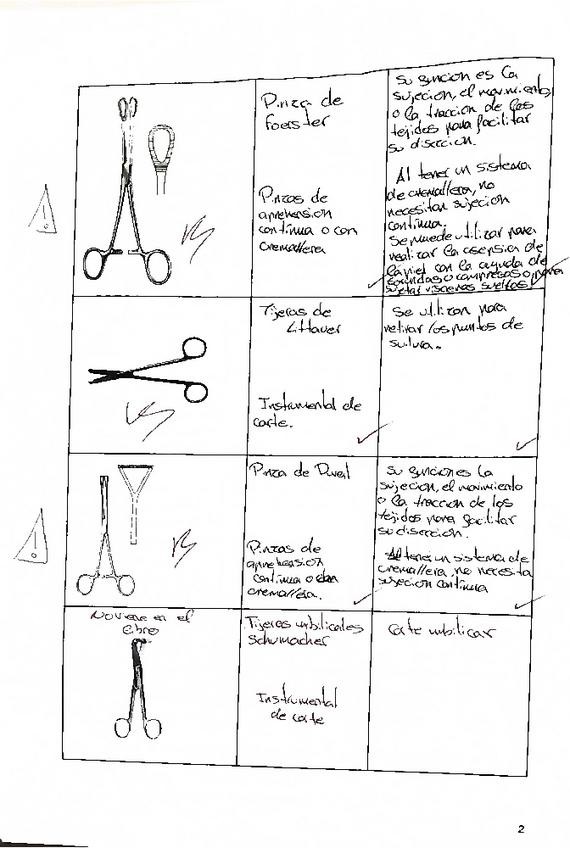 Pinza de
foerster
Pinzas de
aprehension
continua o con
cremallera
su funcion es la
sujecion, el movimiento
o la traccion de los
tejidos para facilitar
su diseccion.
Al tener un sistema
de cremallera, no
necesitan sujecion
continua.
Se puede utilizar para
realizar la asepsia de
la piel con la ayuda de
o compresas o para
sujetar visceras
Tijeras de
Littauer
Instrumental de
corte.
Se utilizan para
retirar los puntos de
sutura.
Pinza de Duval
Pinzas de
aprehension
continua o con
cremallera.
su funcion es la
sujecion, el movimiento
o la traccion de los
tejidos para facilitar
su diseccion.
Al tener un sistema de
cremallera, no necesita
sujecion continua
No viene en el
libro
Tijeras umbilicales
Schumacher
Instrumental
de corte
Corte umbilical
2